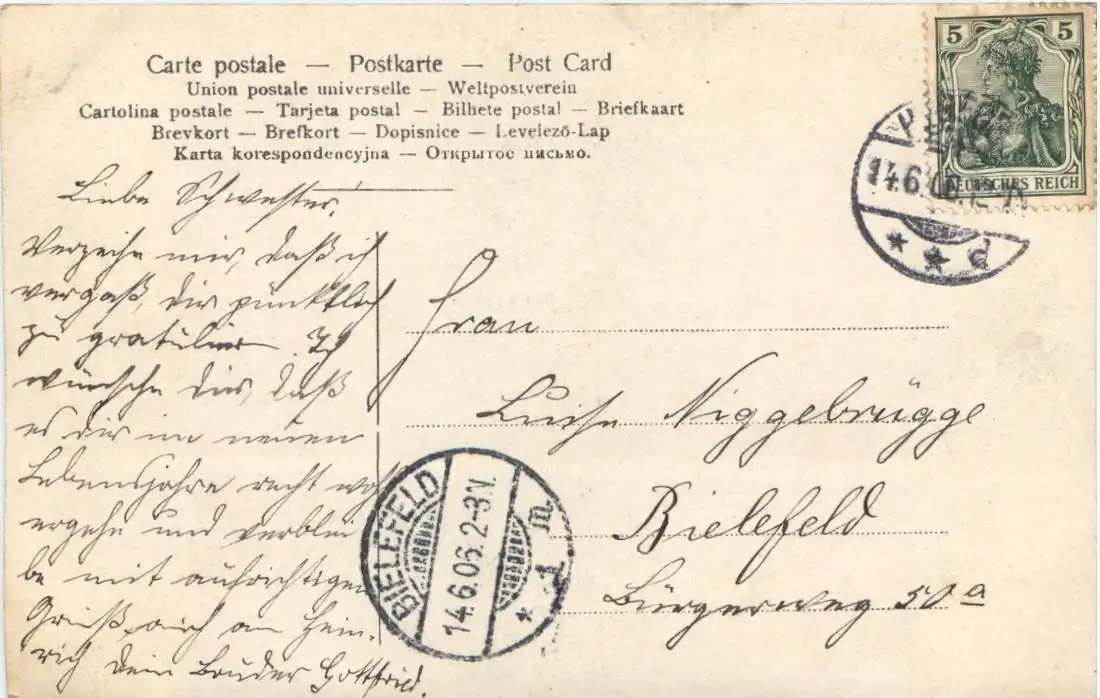 Carte postale — Postkarte — Post Card
Union postale universelle — Weltpostverein
Cartolina postale — Tarjeta postal — Bilhete postal — Briefkaart
Brevkort — Brefkort — Dopisnice — Levelező-Lap
Karta korespondencyjna — Открытое письмо.
5 5
DEUTSCHES REICH
14.6.06
* * d
Liebe Schwester,
Verzeihe mir, daß ich
vergaß, dir pünktlich
zu gratulieren. Ich
wünsche dir, daß
es dir im neuen
Lebensjahre recht wohl
ergehe und verblei
be mit aufrichtigen
Gruß, auch an Hein-
rich dein Bruder Gottfried.
Frau
Luise Niggebrügge
Bielefeld
Bürgerweg 50a
BIELEFELD
14.6.06.2-3N.